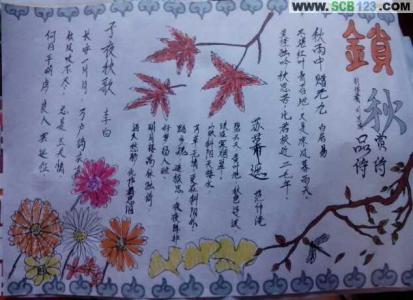 www.SCB123.com
鎖秋
赏诗
品诗
秋雨中赠元九 白居易
不堪红叶青苔地 又是凉风暮雨天
莫怪独吟秋思苦 比君校近二毛年
苏幕遮 范仲淹
碧云天 黄叶地 秋色连波
波上寒烟翠
山映斜阳天接水
芳草无情 更在斜阳外
黯乡魂 追旅思 夜夜除非
好梦留人睡
明月楼高休独倚
酒入愁肠 化作相思泪
子夜秋歌 李白
长安一片月 万户捣衣声
秋风吹不尽 总是玉关情
何日平胡虏 良人罢远征